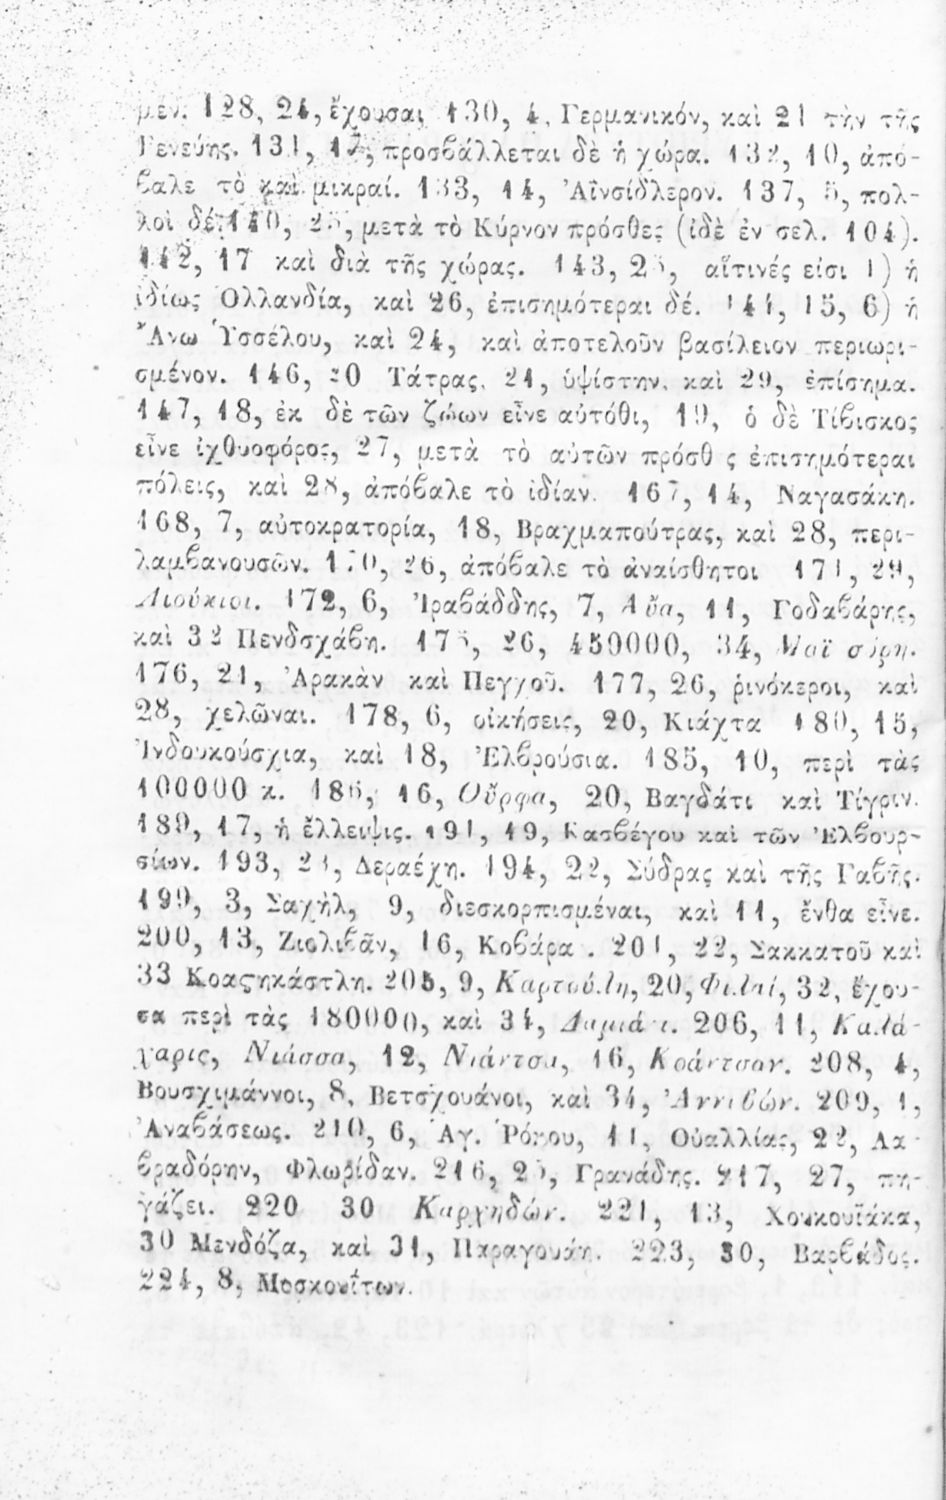 μέν. 128, 24, ἔχουσαι 130, 4, Γερμανικόν, καὶ 21 τὴν τῆς
Γενεύης. 131, 12, προσβάλλεται δὲ ἡ χώρα. 132, 10, ἀπό-
βαλε τὸ καὶ μικραί. 133, 14, Ἀϊνσίδλερον. 137, 5, πολ-
λοὶ δέ. 140, μετὰ τὸ Κύρνον πρόσθες (ἰδὲ ἐν σελ. 104).
142, 17 καὶ διὰ τῆς χώρας. 143, αἵτινές εἰσι 1) ἡ
ἰδίως Ὁλλανδία, καὶ 26, ἐπισημότεραι δέ. 144, 15, 6) ἡ
Ἄνω Ὑσσέλου, καὶ 24, καὶ ἀποτελοῦν βασίλειον περιωρι-
σμένον. 146, 20 Τάτρας, 21, ὑψίστην, καὶ 29, ἐπίσημα.
147, 18, ἐκ δὲ τῶν ζώων εἶνε αὐτόθι, 19, ὁ δὲ Τίβισκος
εἶνε ἰχθυοφόρος, 27, μετὰ τὸ αὐτῶν πρόσθ ς ἐπισημότεραι
πόλεις, καὶ 28, ἀπόβαλε τὸ ἰδίαν. 167, 14, Ναγασάκη.
168, 7, αὐτοκρατορία, 18, Βραχμαπούτρας, καὶ 28, περι-
λαμβανουσῶν. 170, 26, ἀπόβαλε τὸ ἀναίσθητοι 171, 29,
Λιούκιοι. 172, 6, Ἰραβάδδης, 7, Αὔα, 11, Γοδαβάρης,
καὶ 32 Πενδσχάβη. 26, 450000, 34, Μαϊ σύρη.
176, 21, Ἀρακὰν καὶ Πεγχοῦ. 177, 26, ῥινόκεροι, καὶ
28, χελῶναι. 178, 6, οἰκήσεις, 20, Κιάχτα 180, 15,
Ἰνδουκούσχια, καὶ 18, Ἐλβρούσια. 185, 10, περὶ τὰς
100000 κ. 186, 16, Οὔρφα, 20, Βαγδάτι καὶ Τίγριν.
189, 17, ἡ ἔλλειψις. 191, 19, Κασβέγου καὶ τῶν Ἐλβουρ-
σίων. 193, Δεραέχη. 194, 22, Σύδρας καὶ τῆς Γαβῆς.
199, 3, Σαχὴλ, 9, διεσκορπισμέναι, καὶ 11, ἔνθα εἶνε.
200, 13, Ζιολιβᾶν, 16, Κοβάρα . 201, 22, Σακκατοῦ καὶ
33 Κοαςηκάστλη. 205, 9, Καρτούλη, 20, Φιλαί, 32, ἔχου-
σα περὶ τὰς 180000, καὶ 34, Δαμιάτι. 206, 11, Καλά-
χαρις, Νιάσσα, 12, Νιάντσα, 16, Κοάντσαν. 208, 4,
Βουσχιμάννοι, 8, Βετσχουάνοι, καὶ 34, Ἀννιβών. 209, 1,
Ἀναβάσεως. 210, 6, Ἁγ. Ῥόκου, 11, Οὐαλλίας, 22, Λα-
βραδόρην, Φλωρίδαν. 216, Γρανάδης. 217, 27, πη-
γάζει. 220 30 Καρχηδών. 221, 13, Χουκουϊάκα,
30 Μενδόζα, καὶ 31, Παραγουάη. 223, 30, Βαρβάδος.
224, 8, Μοσκουίτων.